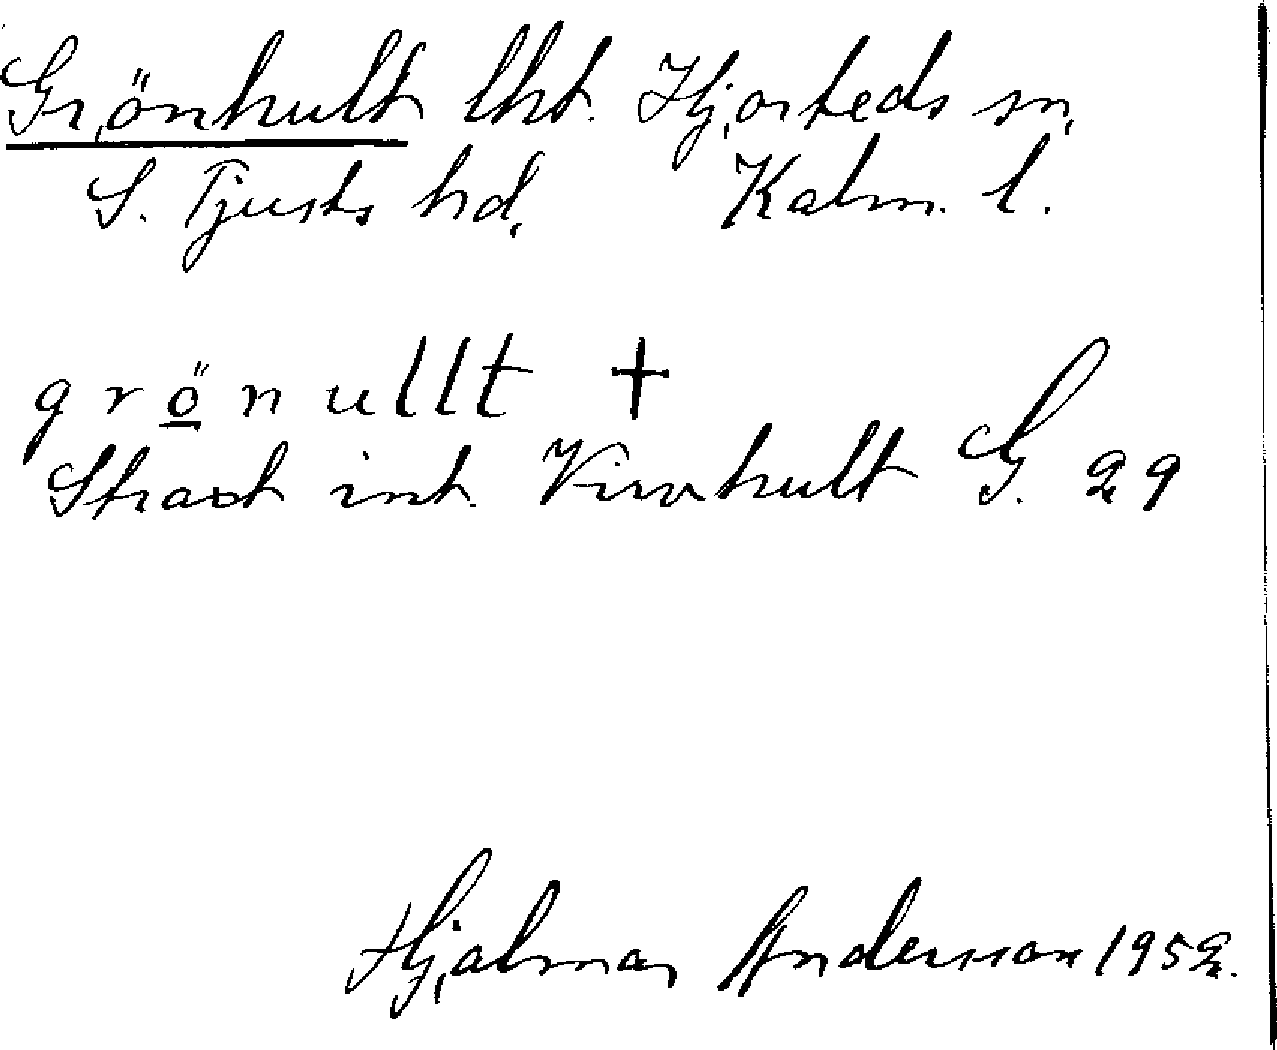 Grönhult lht. Hjorteds sn,
S. Tjusts hd, Kalm. l.
grö̲nullt +
Strax int. Virvhult G. 29
Hjalmar Andersson 1952.